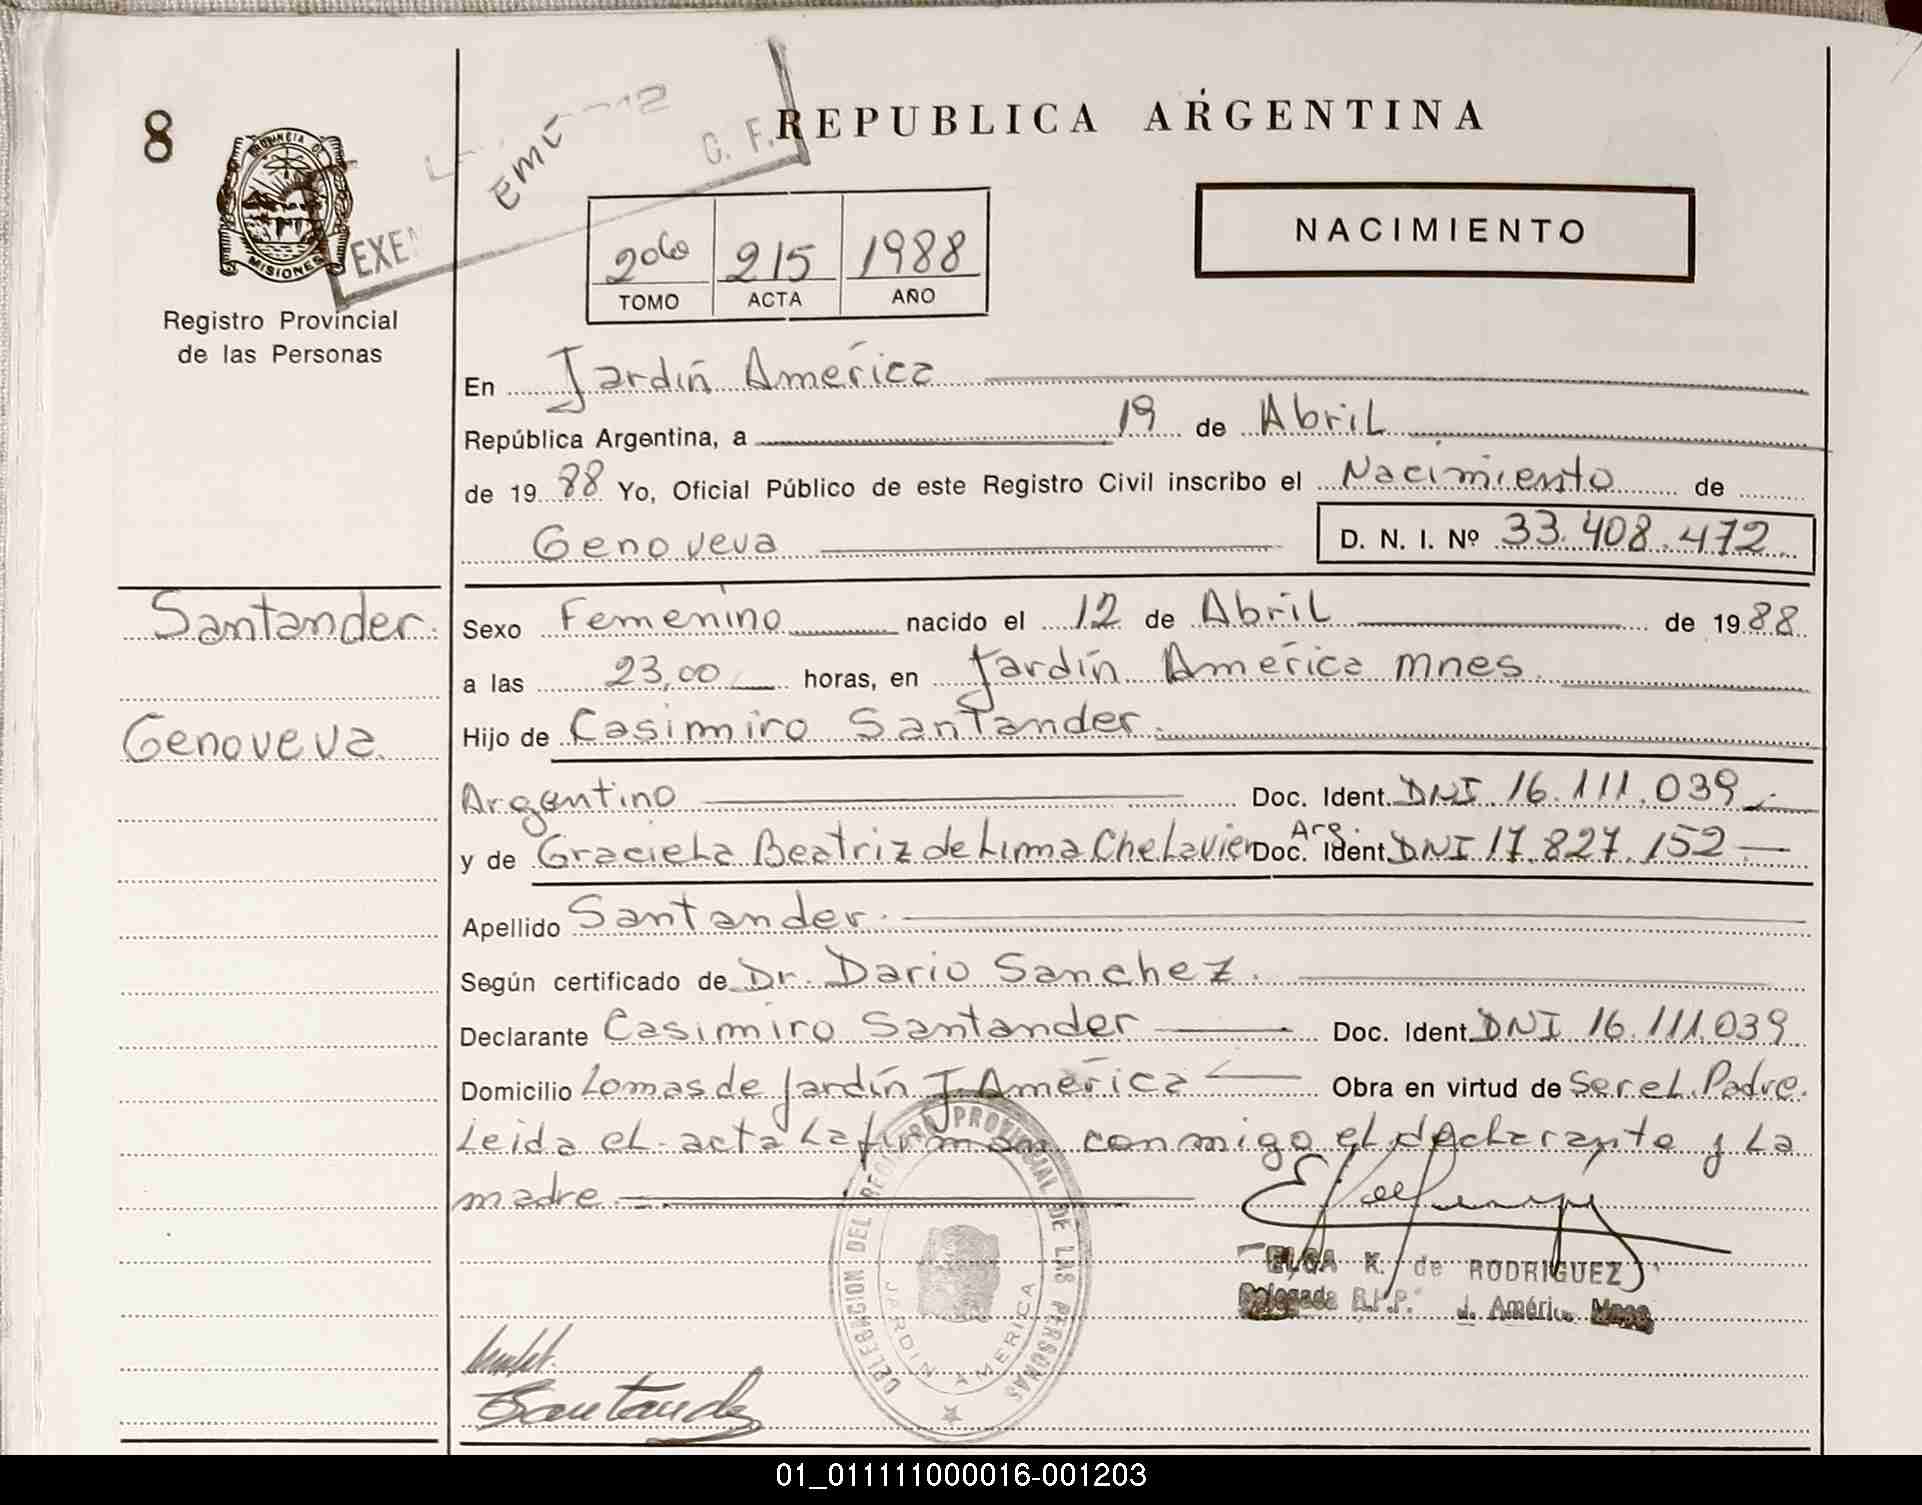 8
PROVINCIA DE
MISIONES
Registro Provincial
de las Personas
EXEN
C. F.
REPUBLICA ARGENTINA
NACIMIENTO
2do 215 1988
TOMO ACTA AÑO
En Jardín América
República Argentina, a 19 de Abril
de 19 88 Yo, Oficial Público de este Registro Civil inscribo el Nacimiento de
Genoveva D. N. I. Nº 33.408.472
Santander.
Genoveva
Sexo Femenino nacido el 12 de Abril de 19 88
a las 23,00 horas, en Jardín América Mnes.
Hijo de Casimiro Santander.
Argentino Doc. Ident. DNI 16.111.039
y de Graciela Beatriz de Lima Chelavier Arg. Doc. Ident. DNI 17.827.152
Apellido Santander.
Según certificado de Dr. Dario Sanchez.
Declarante Casimiro Santander Doc. Ident. DNI 16.111.039
Domicilio Lomas de Jardín J. América Obra en virtud de Ser el Padre.
Leida el acta la firman conmigo el declarante y la
madre.
DELEGACION DEL REGISTRO PROVINCIAL DE LAS PERSONAS
JARDIN AMERICA
ELGA K. de RODRIGUEZ
Delegada R.P.P. J. Améri. Mnes.
Santander
01_011111000016-001203